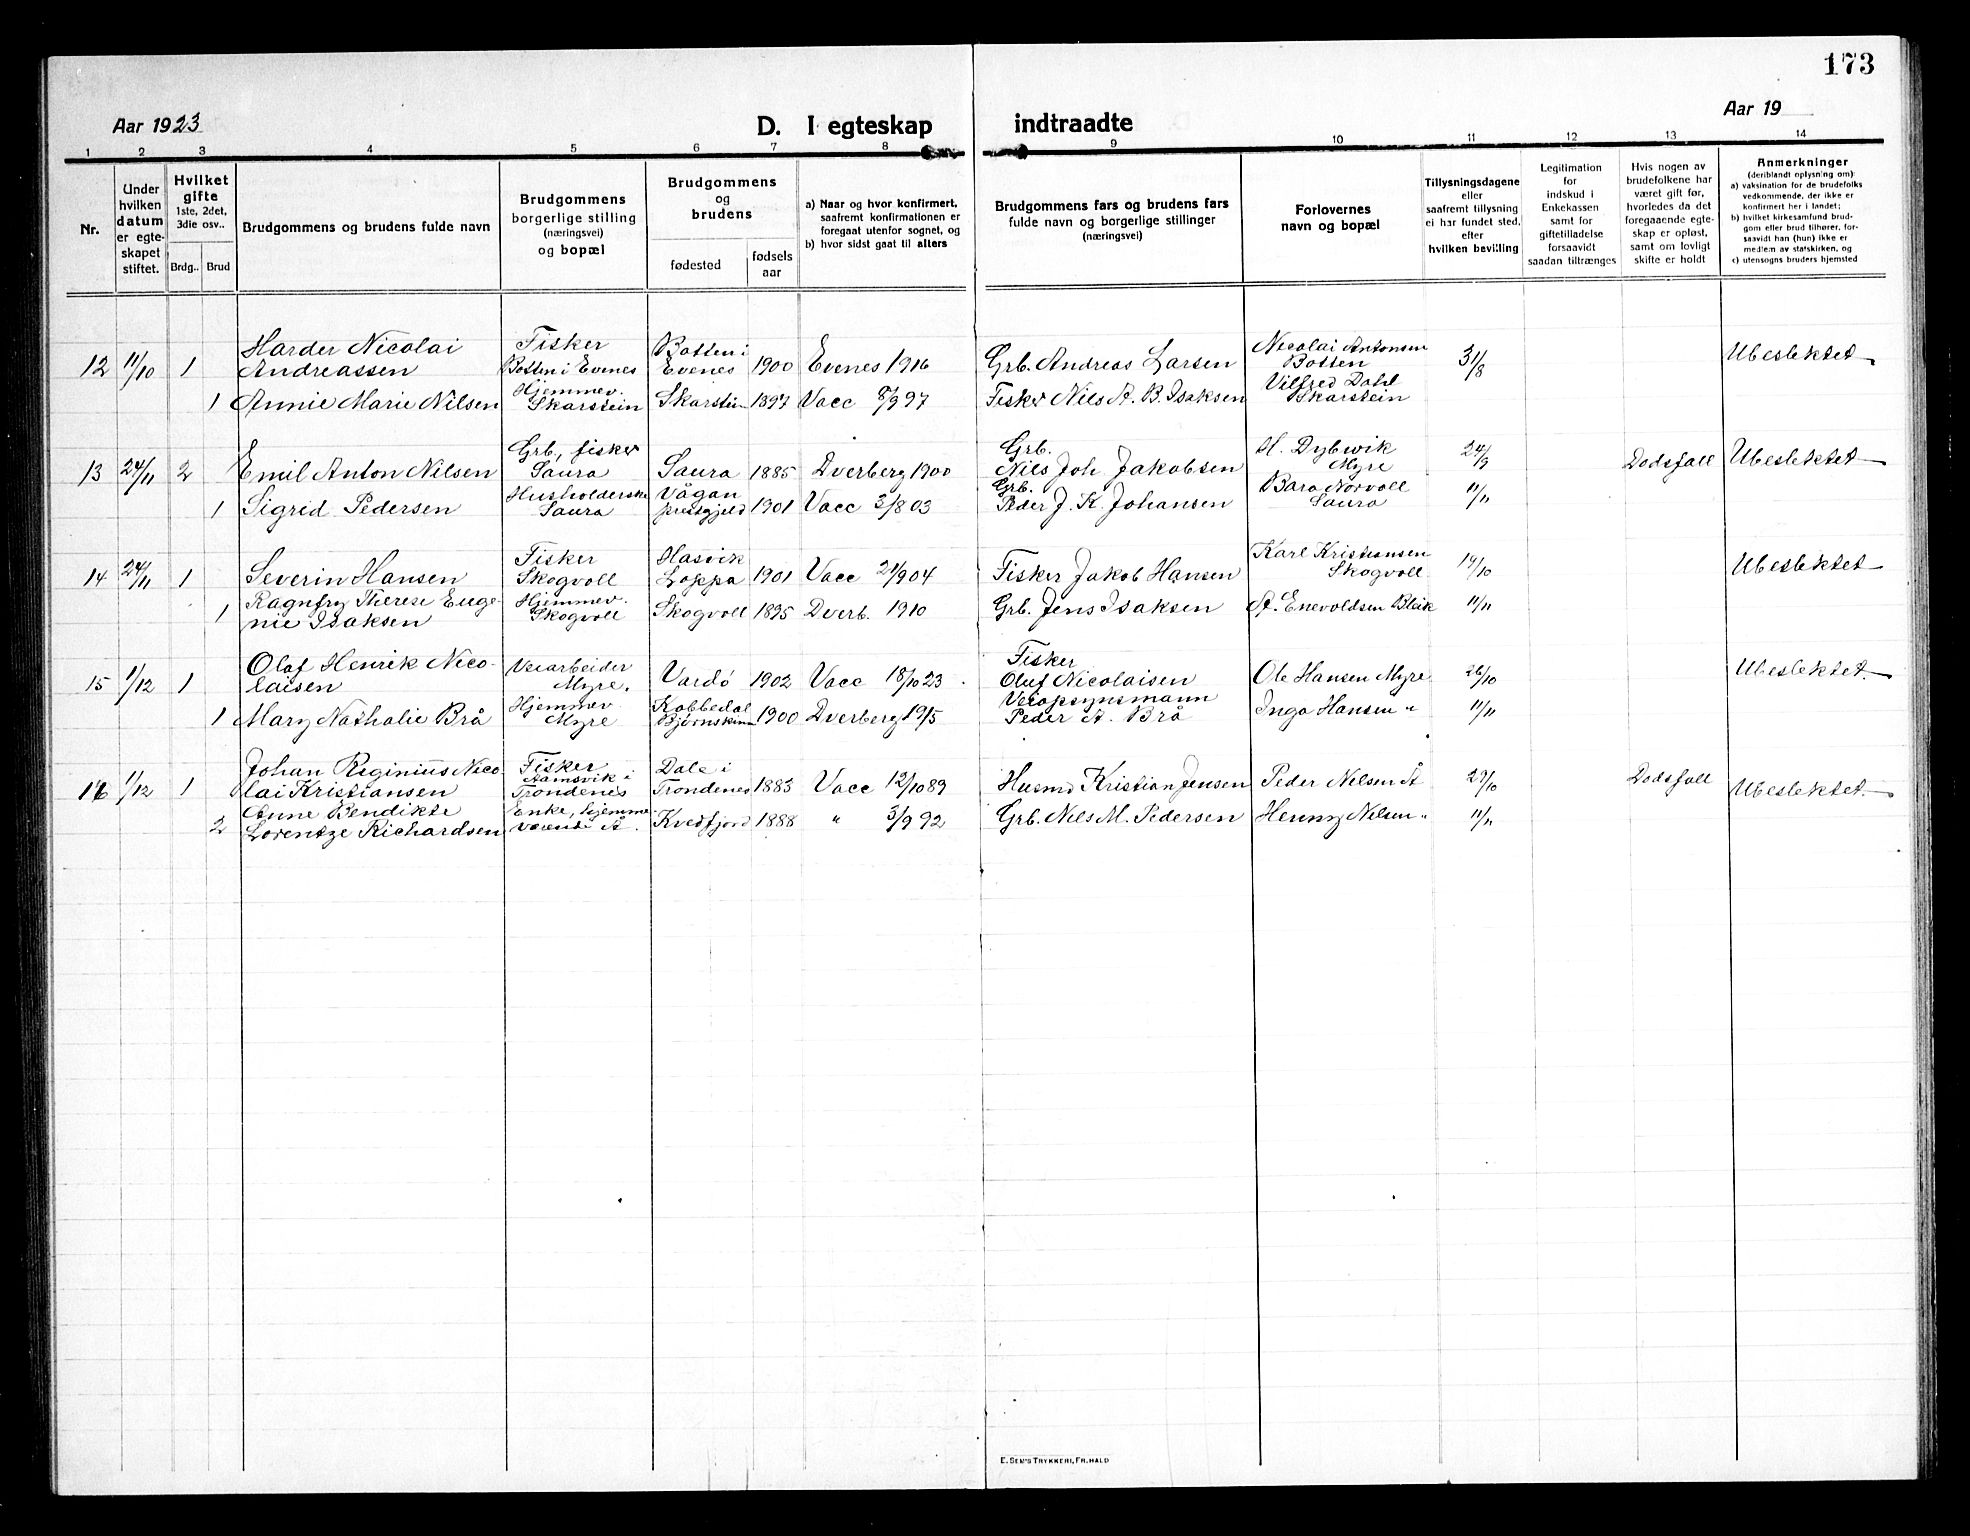 173
Aar 1923
D. I egteskap indtraadte
Aar 19
1 2 3 4 5 6 7 8 9 10 11 12 13 14
Nr.
Under
hvilken
datum
er egte-
skapet
stiftet.
Hvilket
gifte
1ste, 2det,
3die osv..
Brdg.. Brud
Brudgommens og brudens fulde navn
Brudgommens
borgerlige stilling
(næringsvei)
og bopæl
Brudgommens
og
brudens
fødested
fødsels
aar
a) Naar og hvor konfirmert,
saafremt konfirmationen er
foregaat utenfor sognet, og
b) hvor sidst gaat til alters
Brudgommens fars og brudens fars
fulde navn og borgerlige stillinger
(næringsvei)
Forlovernes
navn og bopæl
Tillysningsdagene
eller
saafremt tillysning
ei har fundet sted,
efter
hvilken bevilling
Legitimation
for
indskud i
Enkekassen
samt for
giftetilladelse
forsaavidt
saadan tiltrænges
Hvis nogen av
brudefolkene har
været gift før,
hvorledes da det
foregaaende egte-
skap er opløst,
samt om lovligt
skifte er holdt
Anmerkninger
(deriblandt oplysning om):
a) vaksination for de brudefolks
vedkommende, der ikke er
konfirmert her i landet;
b) hvilket kirkesamfund brud-
gom eller brud tilhører, for-
saavidt han (hun) ikke er
medlem av statskirken, og
c) utensogns bruders hjemsted
12 11/10 1 Harder Nicolai
Andreassen
Fisker
Botten i Evenes
Botten i
Evenes 1900 Evenes 1916
Grb. Andreas Larsen
Nicolai Antonsen
Botten
31/8
Ubeslektet
1 Annie Marie Nilsen
Hjemmev.
Skarstein
Skarstein 1897 Vacc 8/9 97
Fisker Nils A. B. Isaksen
Vilfred Dahl
Skarstein
13 24/11 2 Emil Anton Nilsen
Grb., fisker
Saura
Saura 1885 Dverberg 1900
Grb.
Nils Joh. Jakobsen
H. Dybwik
Myre
24/9
Dødsfall Ubeslektet
1 Sigrid Pedersen
Husholderske
Saura
Vågan
prestgjeld 1901 Vacc 3/8 03
Grb.
Peder J. K. Johansen
Bara Norvoll
Saura
11/11
14 24/11 1 Severin Hansen
Fisker
Skogvoll
Hasvik
Loppa 1901 Vacc 21/9 04
Fisker Jakob Hansen
Karl Kristiansen
Skogvoll
19/10
Ubeslektet
1 Ragnfry Therese Euge-
nie Isaksen
Hjemmev.
Skogvoll
Skogvoll 1895 Dverb. 1910
Grb. Jens Isaksen
A. Enevoldsen Bleik
11/11
15 1/12 1 Olaf Henrik Nico-
laisen
Veiarbeider
Myre.
Vardø 1902 Vacc 18/10 23
Fisker
Oluf Nicolaisen
Ole Hansen Myre
26/10
Ubeslektet
1 Mary Nathalie Brå
Hjemmev
Myre
Kobbedal
Bjørnskinn 1900 Dverberg 1915
Veiopsynsmann
Peder A. Brå
Inga Hansen "
11/11
16 1/12 1 Johan Reginius Nico
lai Kristiansen
Fisker
Aamsvik i
Trondenes
Dale i
Trondenes 1883 Vacc 12/10 89
Husmd Kristian Jensen
Peder Nilsen Å
29/10
Dødsfall
Ubeslektet
2 Anne Bendikte
Lorentze Richardsen
Enke, hjemme
værende Å.
Kvedfjord 1888 " 3/9 92
Grb. Nils M. Pedersen
Henny Nilsen "
11/11
E. SEM'S TRYKKERI, FR.HALD